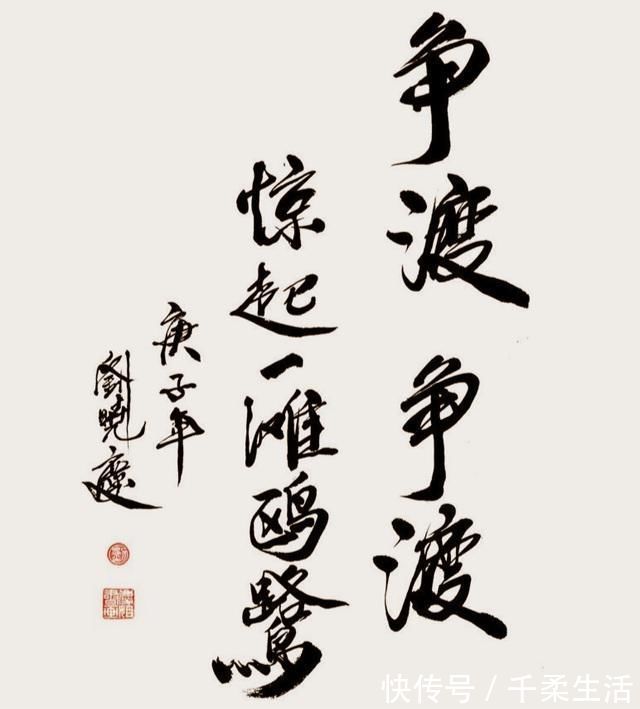 争渡争渡
惊起一滩鸥鷺
庚子年
劉曉慶
快传号 / 千柔生活